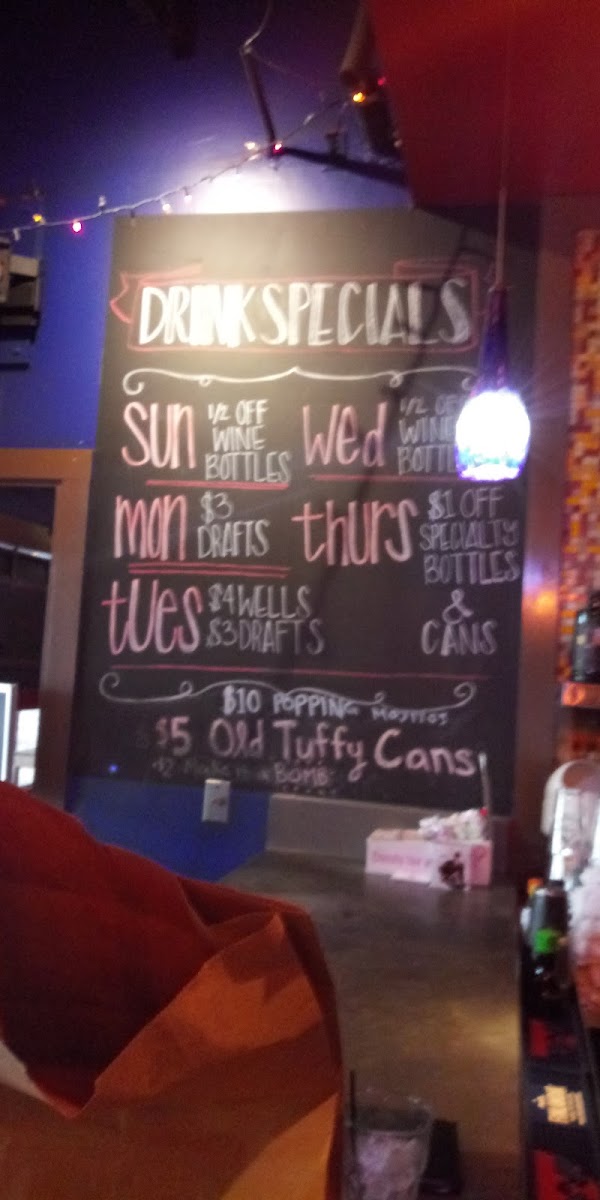 DRINK SPECIALS
SUN 1/2 OFF
WINE
BOTTLES
MON $3
DRAFTS
TUES $4 WELLS
$3 DRAFTS
WED 1/2 OFF
WINE
BOTTL
THURS $1 OFF
SPECIALTY
BOTTLES
&
CANS
$10 POPPING MOJITOS
$5 Old Tuffy Cans
BOMB